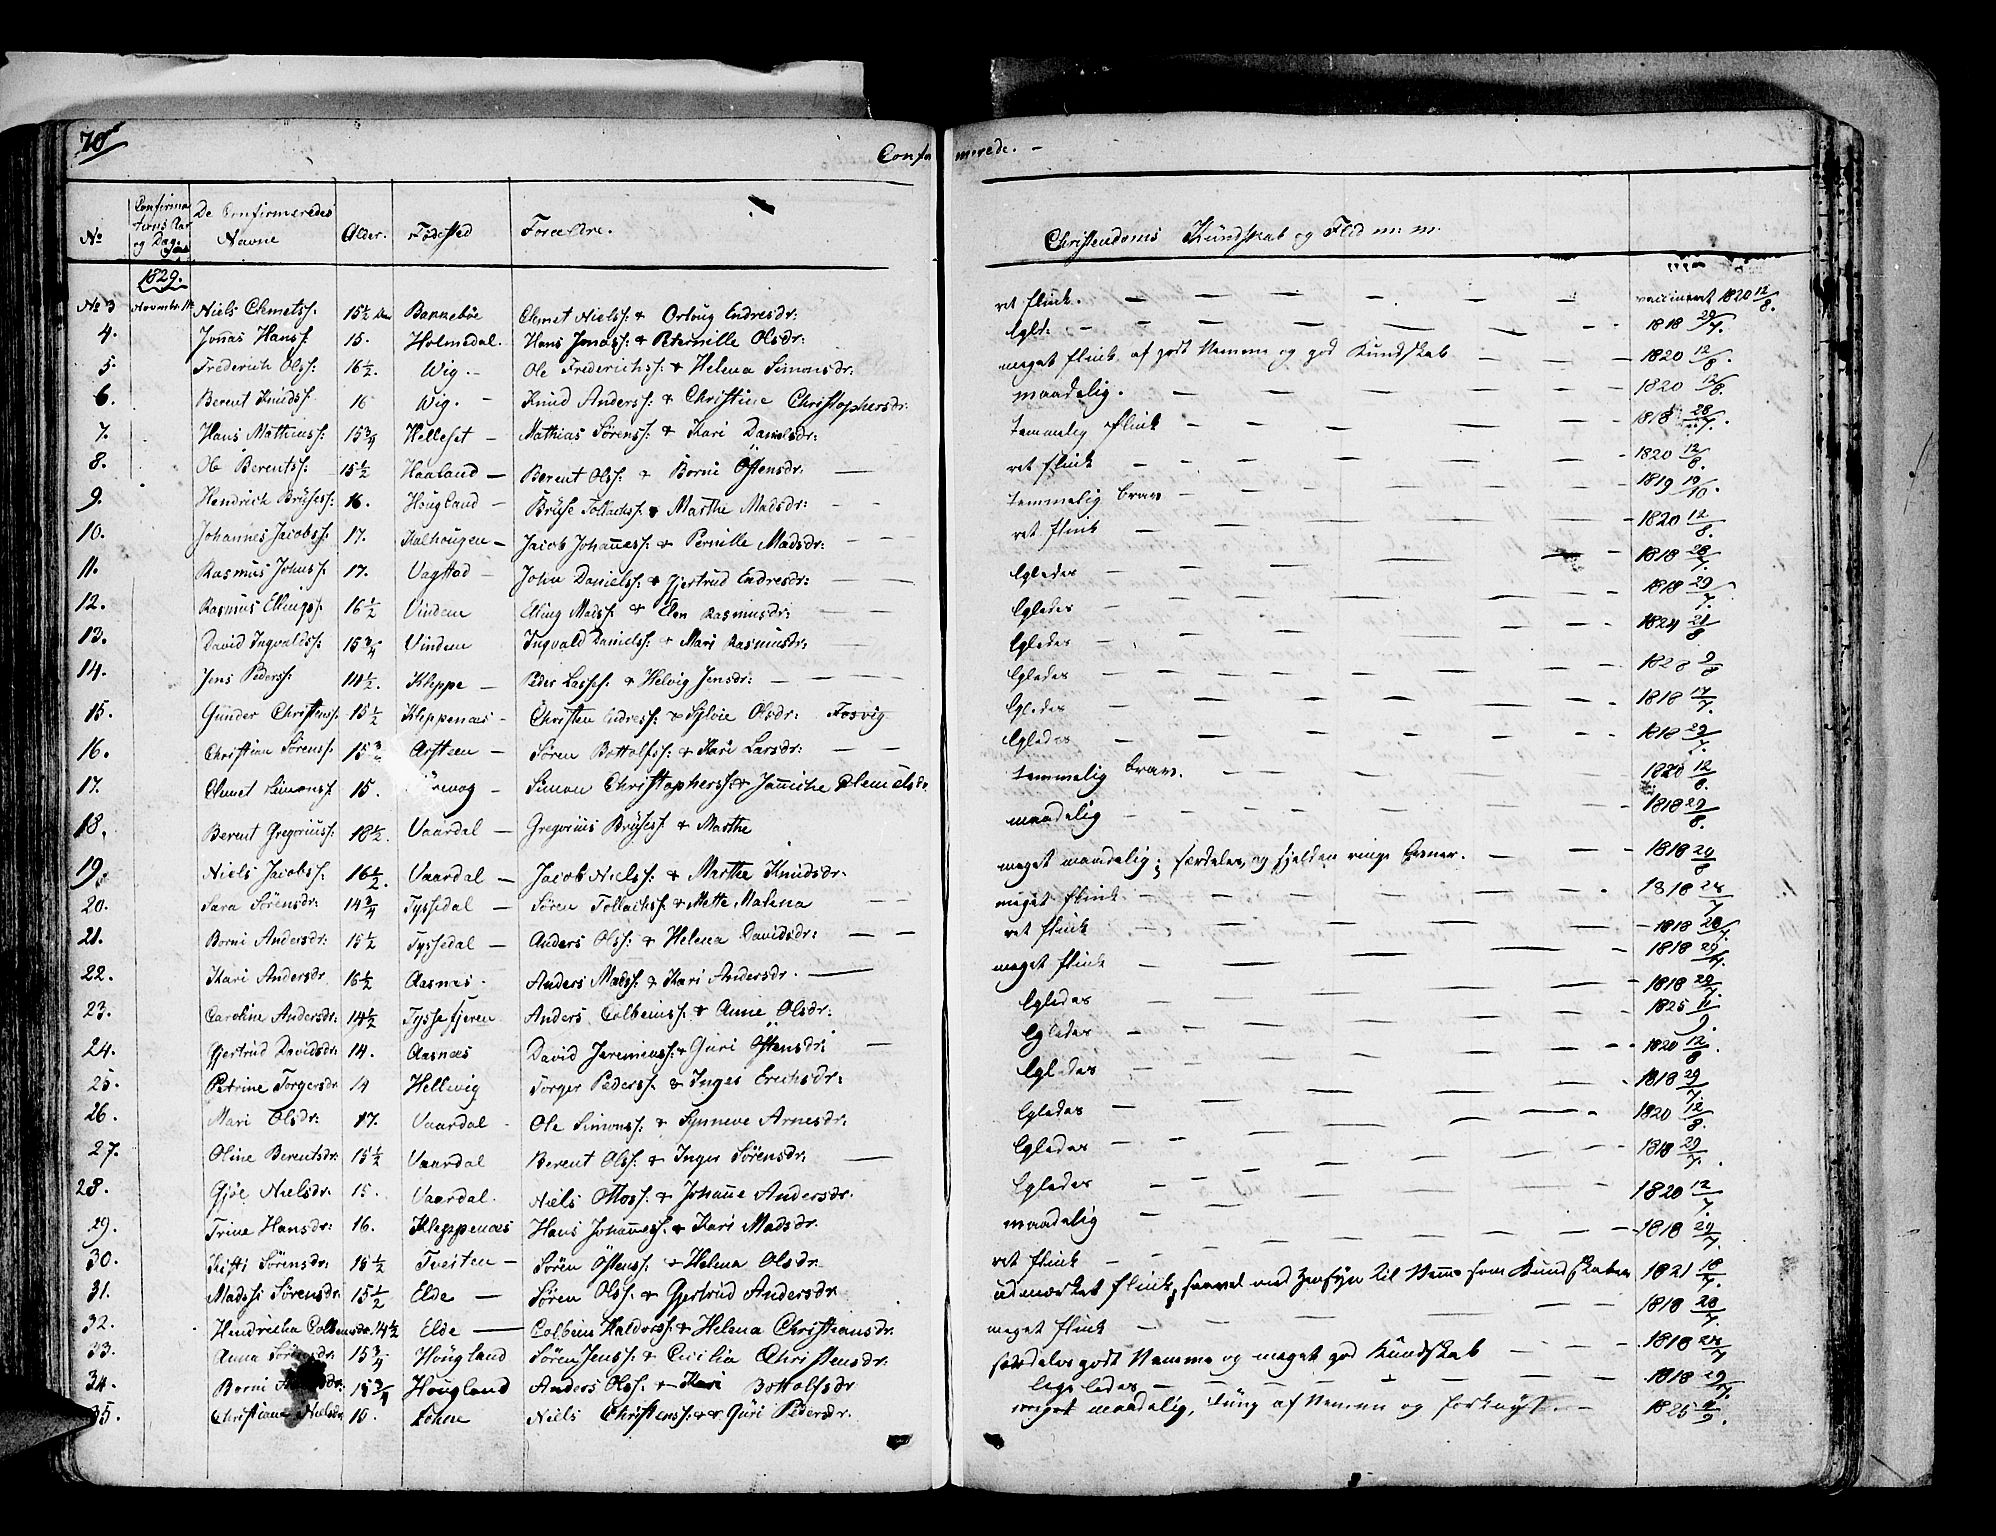 70
Confirmerede. -
No Confirmations Aar og Dag. De Confirmeredes Navne Alder. Födested Forældre. Christendoms Kundskab og Flid m: m:
1829.
No 3 Niels Clemetsf. 15½ Bakkebøe Clemet Nielsf: & Endresdr: ret flink. vaccineret 1820 12/8.
4. Jonas Hansf. 15. Holmedal. Hans Jonasf: & Pernille Olsdr: 1818 29/7.
5. Frederich Olsf: 16½. Wig. - Ole Frederichsf: & Helena Simonsdr: meget flink af godt Nemme og god Kundskab 1820 12/8.
6. Berent Knudsf. 16 Wig. - Knud Andersf: & Christine Christophersdr: maadelig. 1820 12/8.
7. Hans Mathiasf: 15¾ Helleset - Mathias Sørensf: & Kari Danielsdr: temmelig flink 1818 28/7.
8. Ole Berentsf: 15½ Haaland - Berent Olsf: & Borni Östensdr: ret flink 1820 12/8.
9. Hendrich Brüsesf: 16. Hougland - Brüse Tollachsf: & Marthe Madsdr: temmelig brav 1819 19/10.
10. Johannes Jacobsf: 17. Kalhougen - Jacob Johannesf: & Pernille Madsdr: ret flink 1820 12/8.
11. Rasmus Johnsf. 17. Vagstad - John Danielsf: & Gjertrud Endresdr: ligeledes 1818 28/7.
12. Rasmus Ellingsf. 16½ Vindene Elling Madsf: & Elen Rasmusdr: ligeledes 1818 29/7.
13. David Ingvaldsf: 15¾ Vindene Ingvald Danielsf: & Mari Rasmusdr: ligeledes 1824 21/8
14. Jens Pedersf. 14½. Kleppe - Peder Lassesf. & Helvig Jensdr: ligeledes 1828 9/8
15. Gunder Christensf: 15½ Kleppenæs - Christen Endresf: & Sylvie Olsdr: Fosvig ligeledes 1818 17/7.
16. Christian Sørensf: Arsteen - Søren Bottolfsf: & Kari Larsdr: ligeledes 1818 29/7.
17. Clemet Simonsf. 15. Simon Christophersf: & Jannicke temmelig brav. 1820 12/8.
18. Berent Gregoriusf: 18½. Vaardal - Gregorius Brüsesf. & Marthe maadelig 1818 29/8.
19. Niels Jacobsf. 16½. Vaardal - Jacob Nielsf: & Marthe Knudsdr. meget maadelig; 1818 29/8
20. Sara Sørensdr: 14¾ Tyssedal - Søren Tollachsf: & Mette Malena meget flink 1818 28/7
21. Borni Andersdr: 15½ Tyssedal - Anders Olsf: & Helena Davidsdr: ret flink 1818 28/7.
22. Kari Andersdr 16½ Aasnæs. Anders Madsf: & Kari Andersdr. meget flink 1818 29/7.
23. Caroline Andersdr: 14½ Tyssefjeren Anders Colbeinsf: & Anne Olsdr: ligeledes 1825 11/9.
24. Gjertrud Davidsdr: 14. Aasnæs David Jeremiasf: & Guri Östensdr: ligeledes 1820 12/8.
25. Petrine Torgersdr 14 Hellevig Torger Pedersf. & Inger Erichsdr: ligeledes 1818 29/7.
26. Mari Olsdr: 17. Vaardal Ole Simonsf: & Synneve Arnesdr. ligeledes 1820 12/8.
27. Oline Berentsdr: 15½ Vaardal Berent Olsf. & Inger Sørensdr: ligeledes 1818 29/7.
28. Gjøe Nielsdr: 15. Vaardal. Niels Ottosf: & Johanne Andersdr. ligeledes 1820 12/7.
29. Trine Hansdr: 16. Kleppenæs Hans Johannesf: & Kari Madsdr. maadelig 1818 29/7.
30. Kisti Sørensdr: 15½ Tveiten - Søren Östensf: & Helena Olsdr. ret flink
31. Madssi Sørensdr. 15½ Elde - Søren Olsf: & Gjertrud Andersdr udmærket flink, saavel med Hensyn til Nemme som Kundskaber 1821 18/7.
32. Hendricha Colbensdr. 14½ Elde - Colbeins Haldorsf: & Helena Christiansdr. meget flink 1818 28/7.
33. Anna Sørensdr: 15¾ Hougland Søren Jensf: & Cecilia Christensdr: særdeles godt Nemme og meget god Kundskab 1818 28/7
34. Borni 15¾ Hougland Anders Olsf: & Kari Bottolfsdr ligeledes 1818 29/7.
35. Christiane Nielsdr Niels Christensf: & Guri Pedersdr. meget maadelig, Tung af Nemme og 1825 11/9.